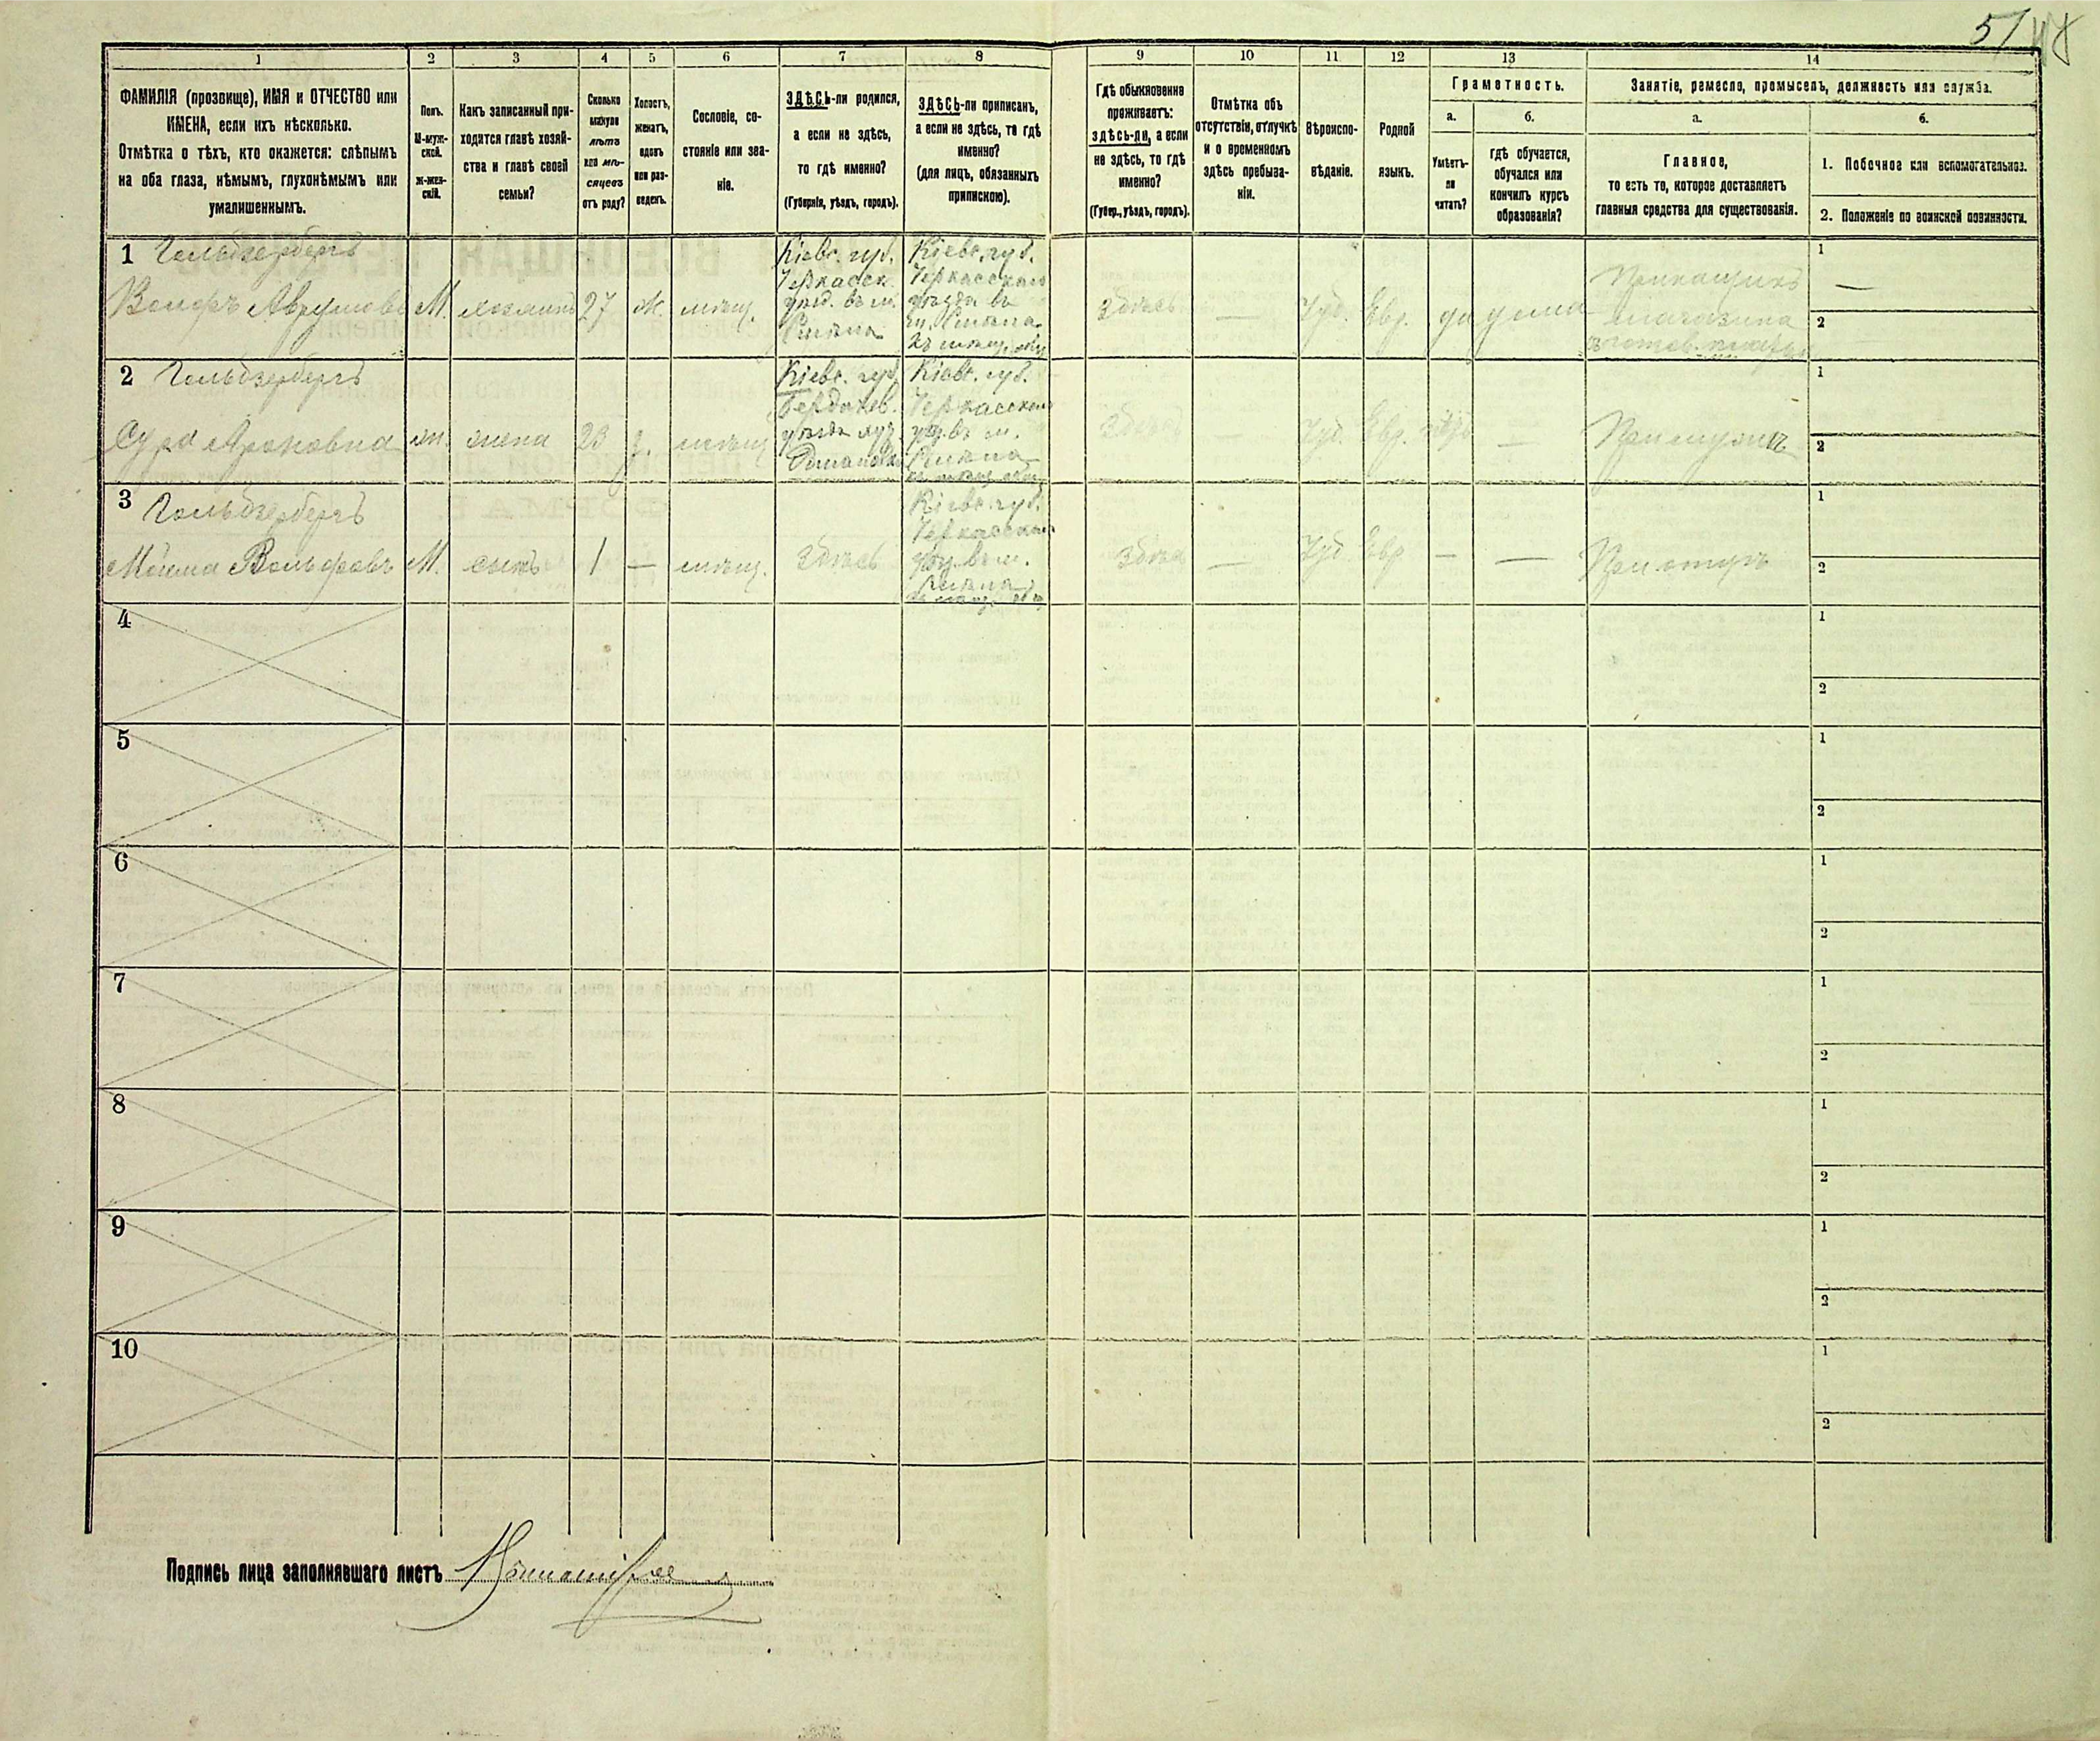 51
1
2
3
4
5
6
7
8
9
10
11
12
13
14
ФАМИЛІЯ (прозвище), ИМЯ и ОТЧЕСТВО или
ИМЕНА, если ихъ нѣсколько.
Отмѣтка о тѣхъ, кто окажется: слѣпымъ
на оба глаза, нѣмымъ, глухонѣмымъ или
умалишеннымъ.
Полъ.
М-муж-
ской.
Ж-жен-
скій.
Какъ записанный при-
ходится главѣ хозяй-
ства и главѣ своей
семьи?
Сколько
минуло
лѣтъ
или мѣ-
сяцевъ
отъ роду?
Холостъ,
женатъ,
вдовъ
или раз-
веденъ.
Сословіе, со-
стояніе или зва-
ніе.
ЗДѢСЬ-ли родился,
а если не здѣсь,
то гдѣ именно?
(Губернія, уѣздъ, городъ).
ЗДѢСЬ-ли приписанъ,
а если не здѣсь, то гдѣ
именно?
(для лицъ, обязанныхъ
припискою).
Гдѣ обыкновенно
проживаетъ:
здѣсь-ли, а если
не здѣсь, то гдѣ
именно?
(Губер., уѣздъ, городъ).
Отмѣтка объ
отсутствіи, отлучкѣ
и о временномъ
здѣсь пребыва-
ніи.
Вѣроиспо-
вѣданіе.
Родной
языкъ.
Грамотность.
а.
Умѣетъ-
ли
читать?
б.
гдѣ обучается,
обучался или
кончилъ курсъ
образованія?
Занятіе, ремесло, промыселъ, должность или служба.
а.
Главное,
то есть то, которое доставляетъ
главныя средства для существованія.
б.
1. Побочное или вспомогательное.
2. Положеніе по воинской повинности.
1 Гольдзербергъ
Вольфъ Аврумовъ
М.
хозяинъ
27
ж.
мѣщ.
Кіевс. губ.
Черкасск.
уѣзд. въ м.
Смѣла
Кіевс. губ.
Черкасскаго
уѣзда въ
м. Смѣла
къ мѣщ. общ
здѣсь
—
Іуд.
Евр.
да
дома
Прикащикъ
магазина
готов. платья
1 —
2
2 Гольдзербергъ
Сура Ароновна
ж.
жена
23
з.
мѣщ
Кіевс. губ.
Бердичев.
уѣзда
Кіевс. губ.
Черкасскаго
уѣз. въ м.
Смѣла
Здѣсь
Іуд.
Евр.
—
При мужѣ
1
2
3 Гольдзербергъ
Вольфовъ
М.
сынъ
1
—
мѣщ.
здѣсь
Кіевс. губ.
Черкасскаго
уѣз. въ м.
Смѣла
Здѣсь
—
Іуд
Евр
—
—
При отцѣ
1
2
4
1
2
5
1
2
6
1
2
7
1
2
8
1
2
9
1
2
10
1
2
Подпись лица заполнявшаго листъ